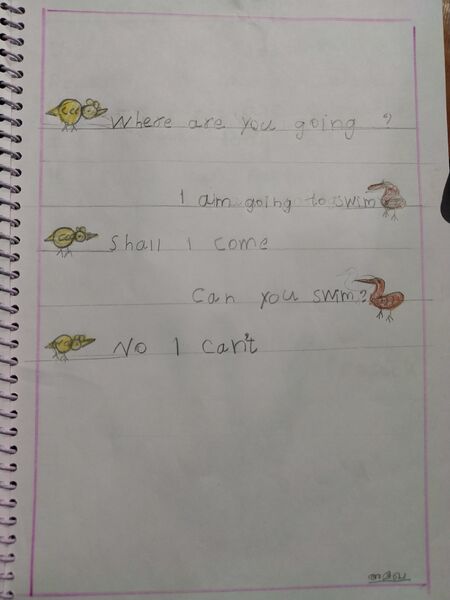 Where are you going ?
I am going to swim
Shall I come
Can you swim?
No I can't
അമേഖ